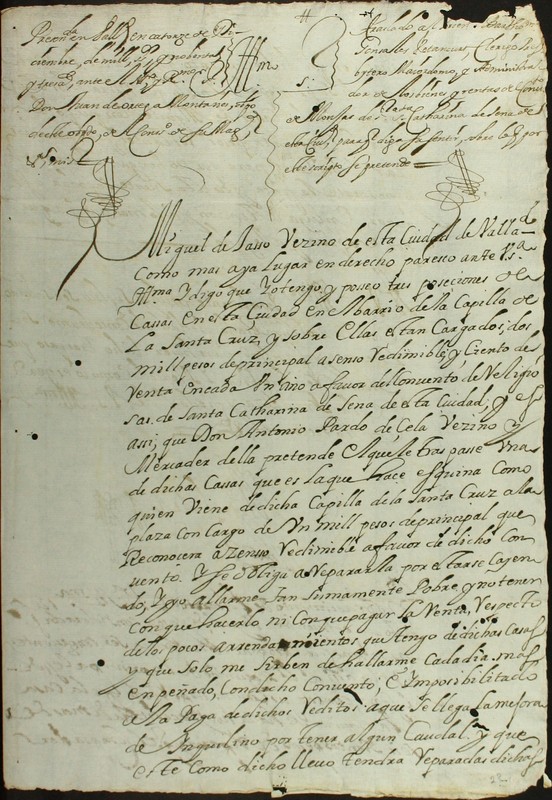 Pre.on en Vall.d en catorze de Di-
ciembre, de mill, y nobenta
y tres a.s, ante el
Don Juan de ortega Montañes, obpo
de este obpdo, de el Cons.o de su Mag.d
Traslado a el
Gonsales Betancurt Clerigo Pres-
bytero Maiordomo, y Administra
dor de los bienes y rentas de el conv.to
de Monjas de S.ta Catharina de Sena de
esta ciud.d para q diga, sobre lo q por
este escripto se pretende
Miguel de Jasso Vezino de esta Ciudad de Vallad.
Como mas aya Lugar en derecho paresco ante V.S.a
Yllma Y digo que Yo tengo, y poseo tres poseciones de
Cassas en esta Ciudad en el barrio de la Capilla de
La Santa Cruz, y sobre Ellas estan Cargados, dos
mill pesos de principal a senso Redimible, y Ciento de
Renta En cada Un año a favor del Convento, de Religio
sas, de Santa Catharina de Sena de esta Ciudad, y es
assi, que Don Antonio Pardo de Cela, Vezino y
Mercader de ella pretende El que le traspasse Una
de dichas Cassas que es la que hace esquina Como
quien Viene de dicha Capilla de la Santa Cruz a la
plaza con Cargo de Un mill pesos de principal que
Reconocera a Zenso Redimible a favor de dicho Con
uento. Y se obliga a Repararla por estarse Cayen
do, Y yo allarme tan sumamente Pobre y no tener
con que hacerlo ni con que pagar la Renta, Respecto
de los pocos arrendamientos que tengo de dichas Casas
y que Solo me sirben de hallarme Cada dia mas
enpeñado, Con dicho Convento, e Imposibilitado
de la Paga de dichos Reditos; a que se llega La mejora
de Ynquelino por tener algun Caudal. Y que
este Como dicho lleuo tendra Reparadas dichas